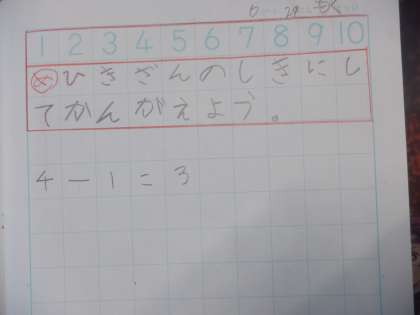 1 2 3 4 5 6 7 8 9 10
め ひきざんのしきにし
てかんがえよう。
4-1=3